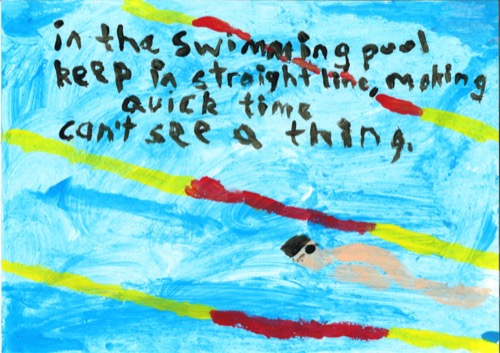 in the swimming pool
keep in straight line, making
quick time
can't see a thing.